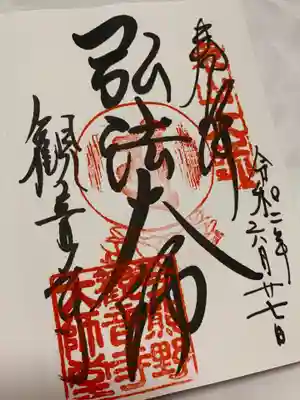 奉拝
令和
二年
六月廿七日
弘法大師
観音寺
熊野
観音寺
大師堂